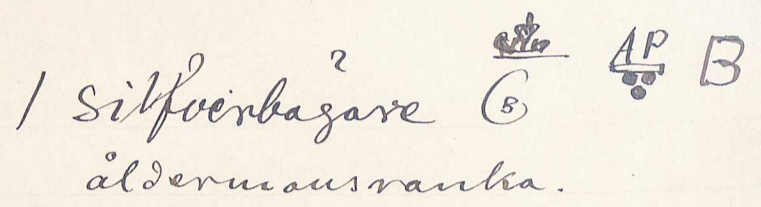 1 silfverbägare B AP B
åldermansranka.